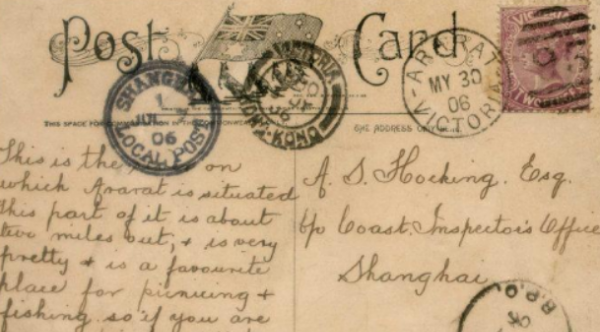 Post Card
ARARAT
MY 30
06
VICTORIA
VICTORIA
TWO
SHANGHAI
1
JUL
06
LOCAL POST
VICTORIA
HONG-KONG
THIS SPACE FOR
ADDRESS ONLY
This is the on
which Ararat is situated
this part of it is about
two miles out, + is very
pretty + is a favourite
place for picnicing +
fishing so if you are
A. S. Hocking. Esq.
c/o Coast Inspector's Office
Shanghai
B.P.O.